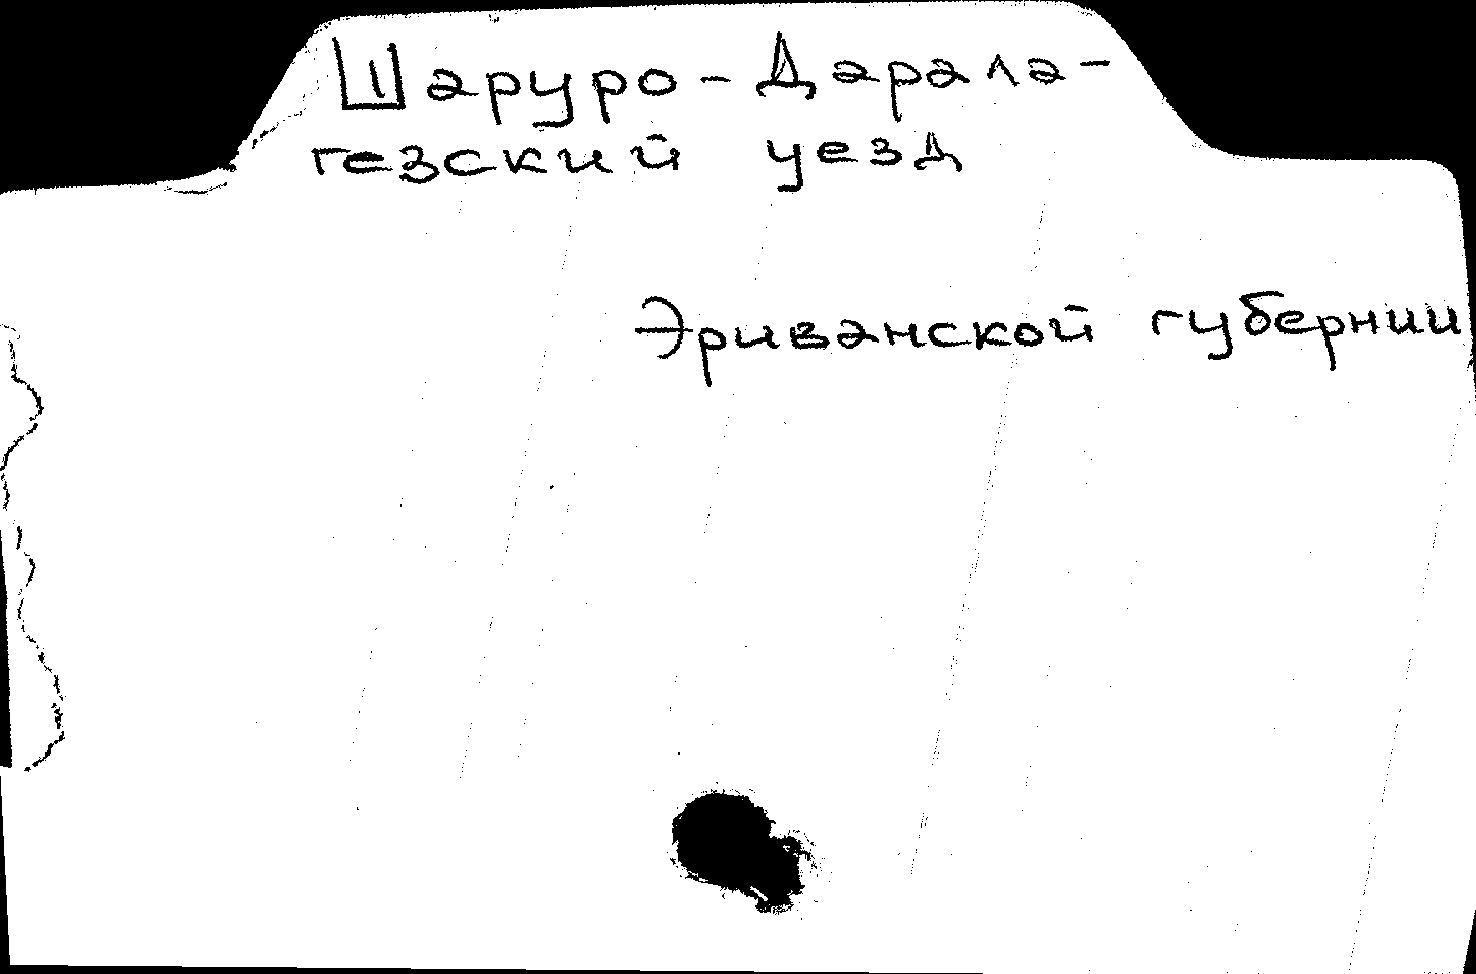 Шаруро-Дарала-
гезский уезд
Эриванской губернии